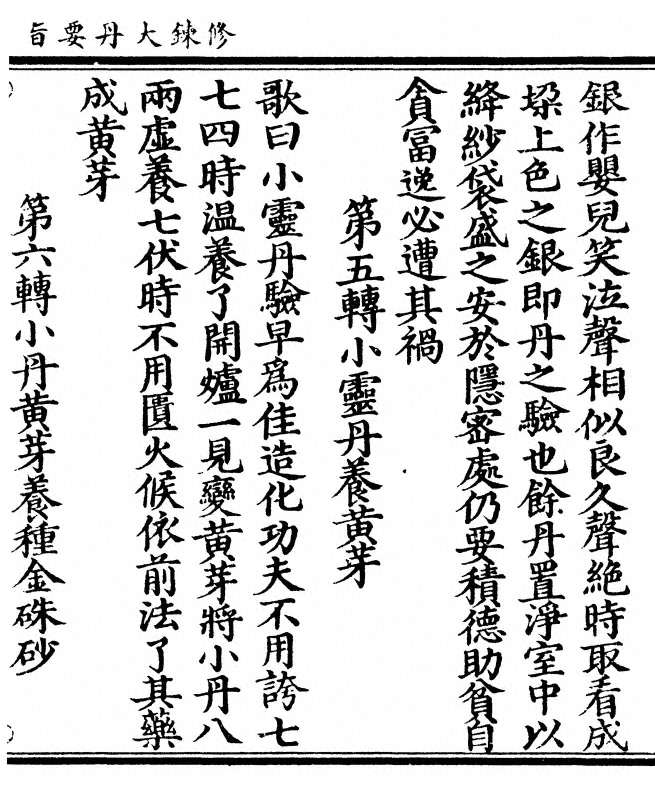 修鍊大丹要旨
銀作嬰兒笑泣聲相似良久聲絶時取看成
垜上色之銀即丹之驗也餘丹置淨室中以
絳紗袋盛之安於隱密處仍要積德助貧自
貪冨逆必遭其禍
第五轉小靈丹養黄芽
歌曰小靈丹驗早爲佳造化功夫不用誇七
七四時温養了開爐一見變黄芽將小丹八
兩虚養七伏時不用匱火候依前法了其藥
成黄芽
第六轉小丹黄芽養種金硃砂